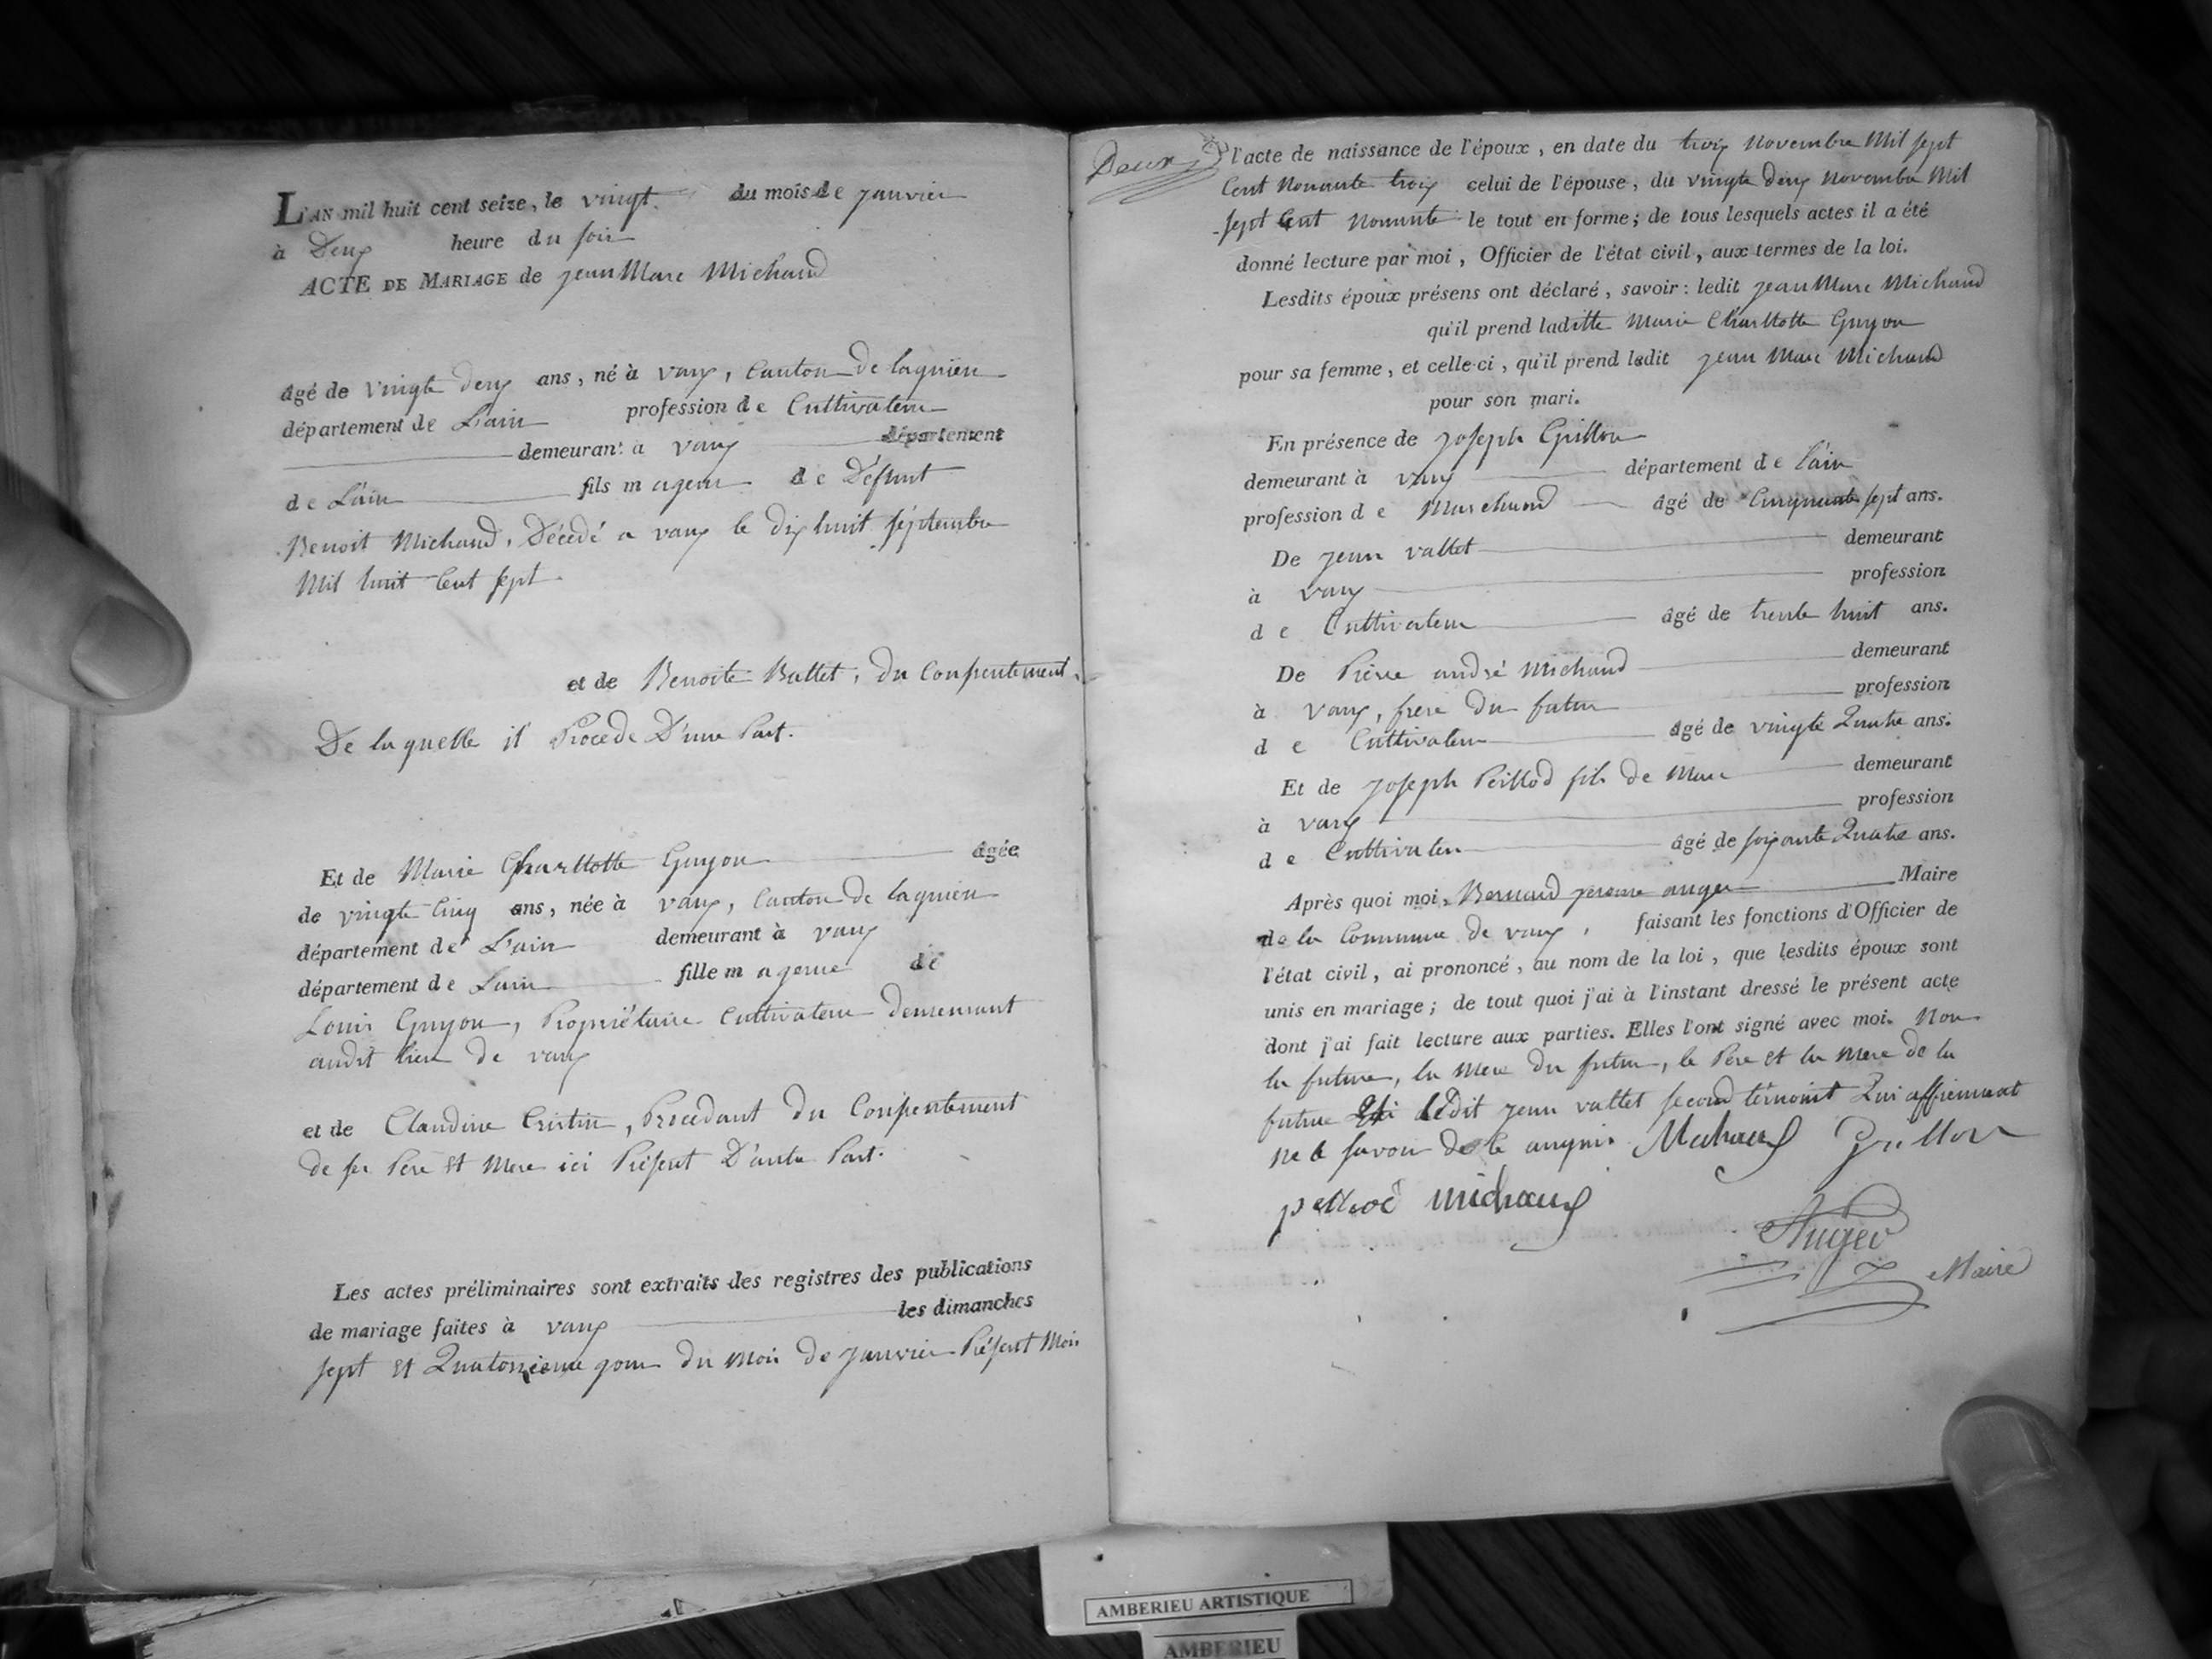 L'AN mil huit cent seize, le vingt du mois de janvier
à Deux heure du soir
ACTE DE MARIAGE de jean Marc Michaud
âgé de vingte deux ans, né à vaux, Canton de lagnieu
département de L'ain profession de Cultivateur
demeurant à vaux département
de L'ain fils mageur de Défunt
Benoit Michaud, Décédé a vaux le dix huit séptembre
Mil huit Cent sept
et de Benoite Ballet, du Consentement
De laquelle il Procede D'une Part.
Et de Marie Charllotte Guyon âgée
de vingte Cinq ans, née à vaux, Canton de lagnieu
département de L'ain demeurant à vaux
département de L'ain fille mageure de
Louis Guyon, Propriétaire Cultivateur demeurant
audit lieu de vaux
et de Claudine Cristin, Procedant du Consentement
de ses Pere et Mere ici Présent D'autre Part.
Les actes préliminaires sont extraits des registres des publications
de mariage faites à vaux les dimanches
sept et Quatorzieme jour du Mois de janvier Présent Mois
Deux
l'acte de naissance de l'époux, en date du trois Novembre Mil sept
Cent Nonante trois celui de l'épouse, du vingte deux Novembre Mil
sept Cent Nonante le tout en forme; de tous lesquels actes il a été
donné lecture par moi, Officier de l'état civil, aux termes de la loi.
Lesdits époux présens ont déclaré, savoir: ledit jean Marc Michaud
qu'il prend laditte Marie Charllotte Guyon
pour sa femme, et celle-ci, qu'il prend ledit jean Marc Michaud
pour son mari.
En présence de joseph Grillon
demeurant à vaux département de l'ain
profession de Marchand âgé de Cinquante sept ans.
De jean vallet demeurant
à vaux profession
de Cultivateur âgé de trente huit ans.
De Piérre andré Michaud demeurant
à vaux, frere du futur profession
de Cultivateur âgé de vingte Quatre ans.
Et de joseph Peillod fils de Marc demeurant
à vaux profession
de Cultivateur âgé de soixante Quatre ans.
Après quoi moi, Bernard jerome auger Maire
de la Commune de vaux, faisant les fonctions d'Officier de
l'état civil, ai prononcé, au nom de la loi, que lesdits époux sont
unis en mariage; de tout quoi j'ai à l'instant dressé le présent acte
dont j'ai fait lecture aux parties. Elles l'ont signé avec moi. Non
la future, la Mere du futur, le Pere et la Mere de la
future ledit jean vallet second témoint Qui affirment
ne le savoir de ce anquis Michaud Grillon
peillod michaud
Auger
Maire
AMBERIEU ARTISTIQUE
AMBERIEU